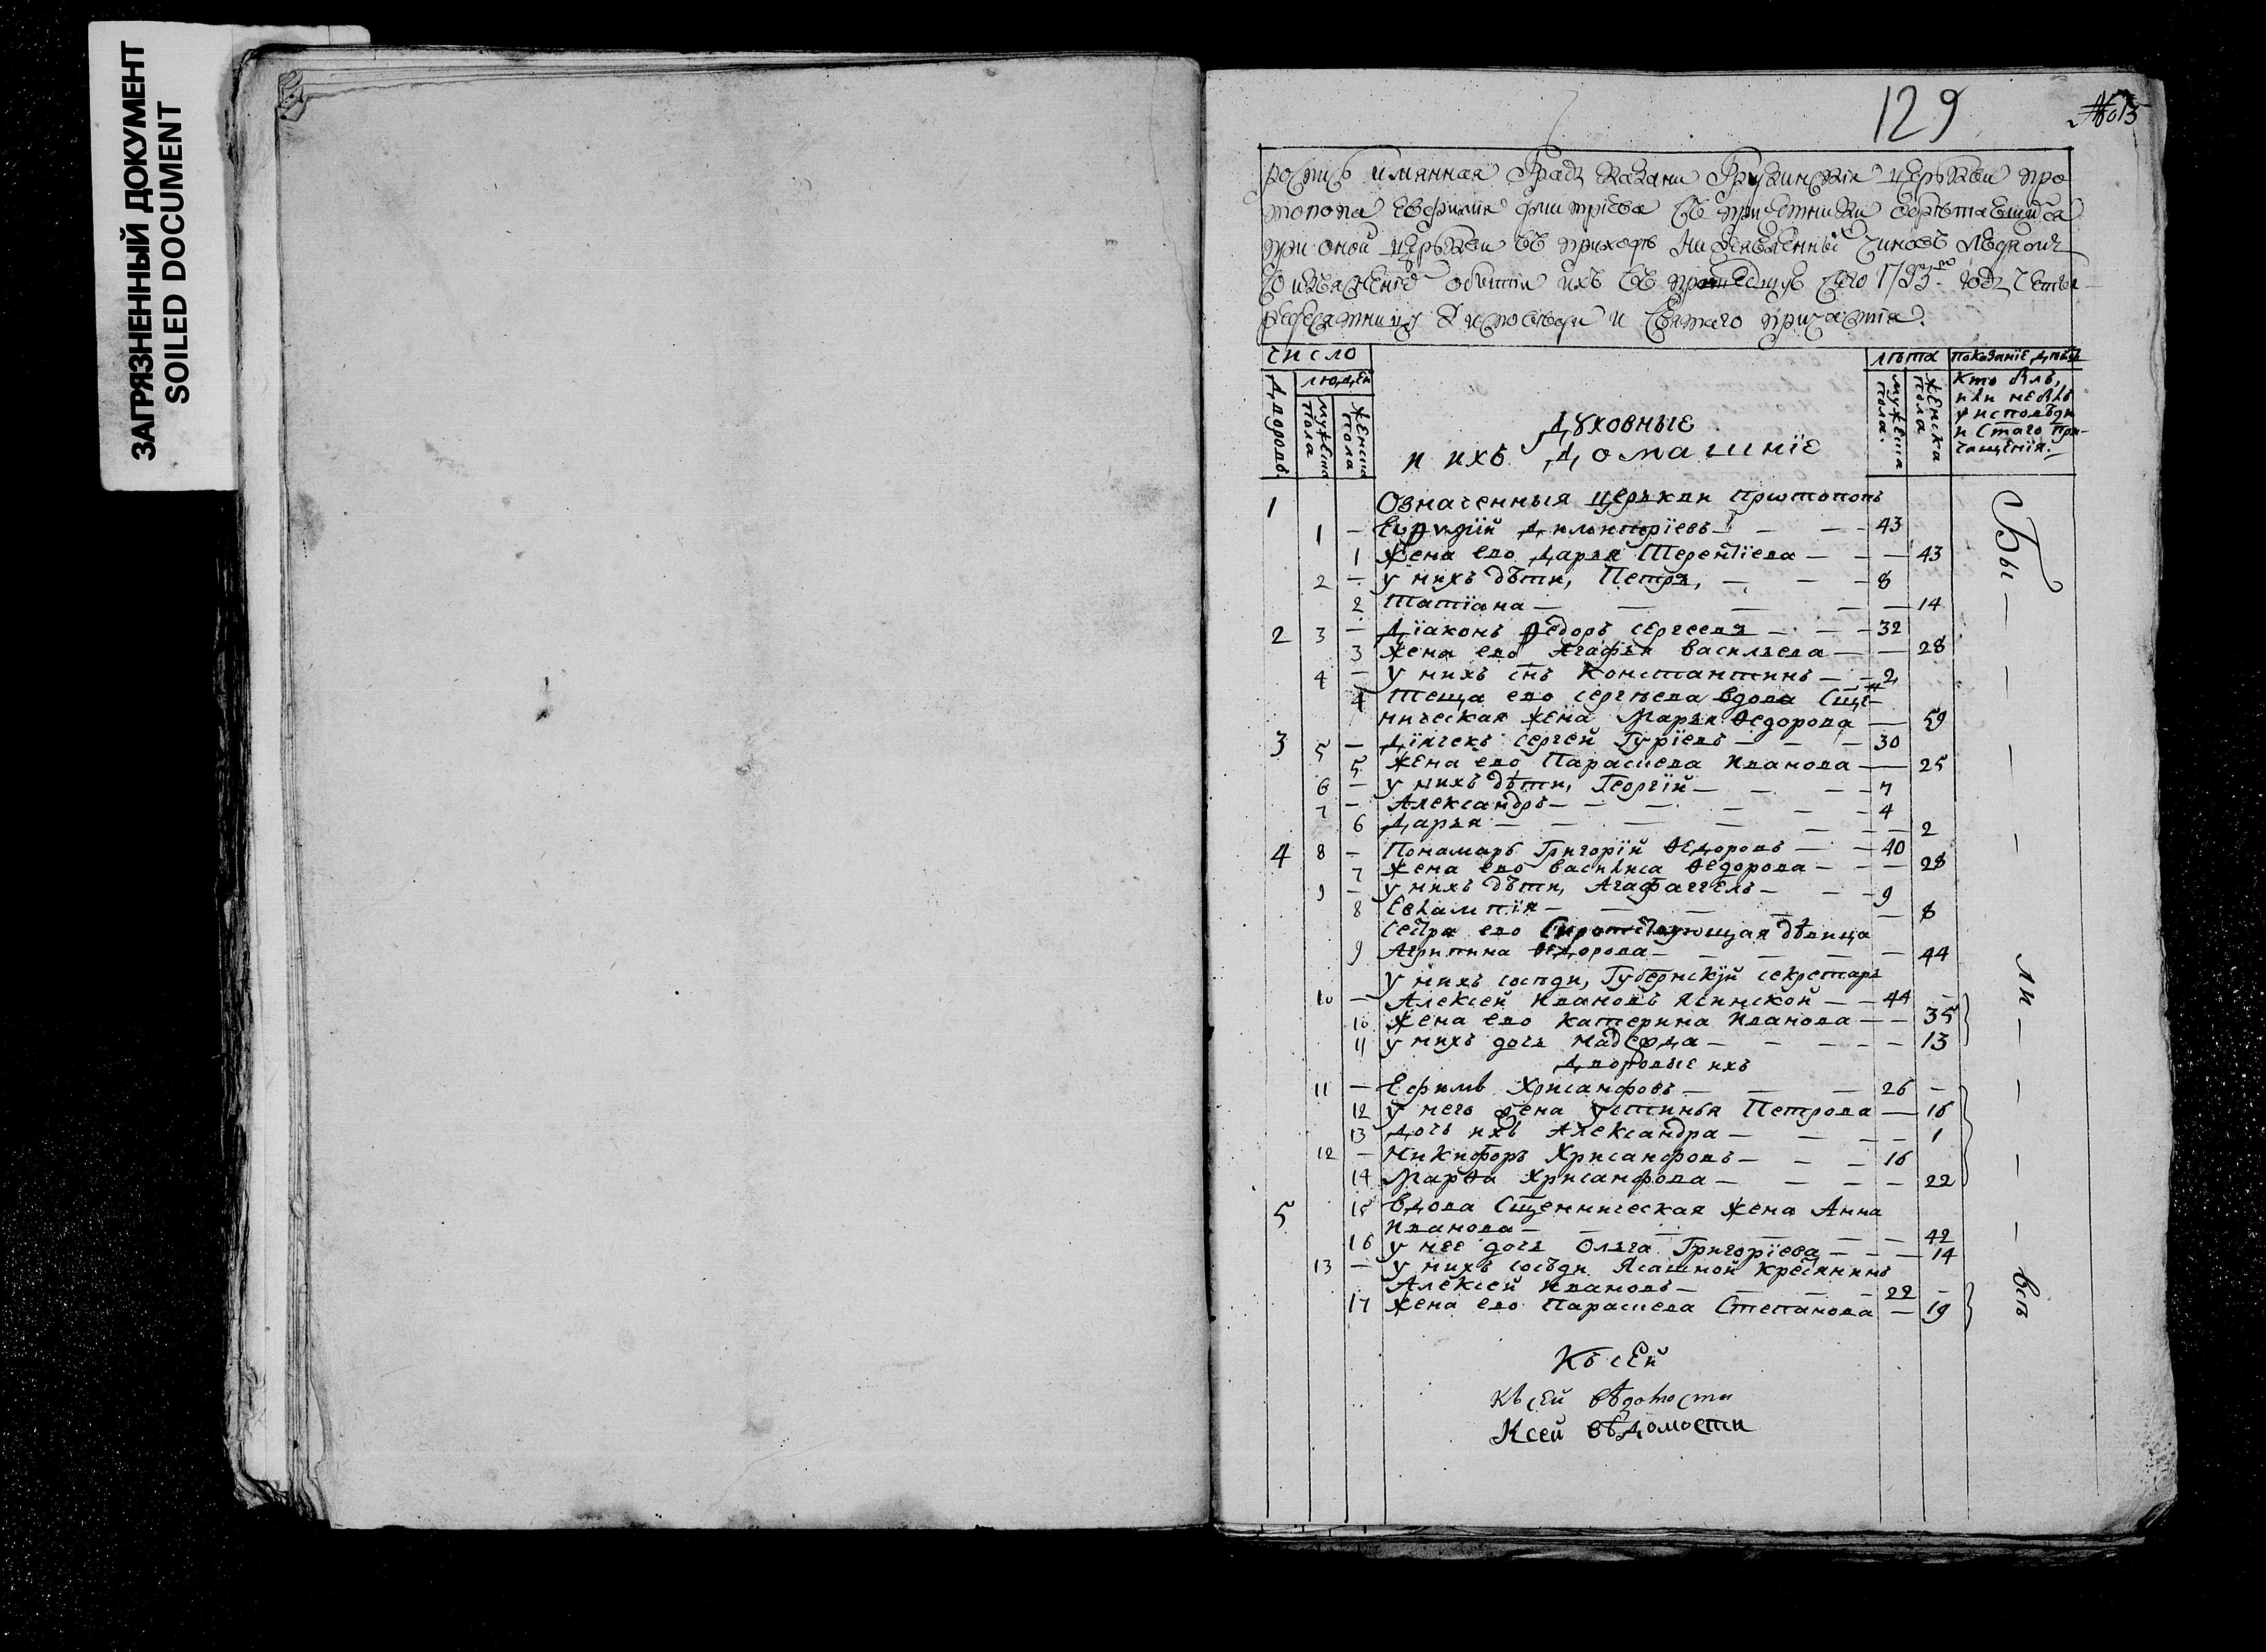 ЗАГРЯЗНЕННЫЙ ДОКУМЕНТ
SOILED DOCUMENT
129
№ 15
роспись имянная Града Казани Грузинскія церькви про
топопа Евфимія Дмитріева съ причетники обрѣтающихся
при оной церькви въ приходѣ нижеявленныхъ чиновъ людѣй
со изъясненіемъ бытія ихъ въ сего 1793 годъ четы
редесятницу у исповѣди и святаго причастія.
число
людей
лѣта
показаніе дѣйст
дворовъ
мужеска пола
женска пола
духовные
и ихъ домашніе
мужеска пола.
женска пола
кто былъ,
или не былъ
у исповѣди
и стаго при-
чащенія.
1 Означенныя церькви протопопъ
1 — Евфимій Димитріевъ — — — 43
1 Жена ево Дарья Терентіева — — — 43
2 — у нихъ дѣти, Петръ, — — — 8
2 Татіана — — — — — 14
2 3 — Діаконъ Федоръ Сергеевъ — — — 32
3 жена ево Агафья Васильева — — 28
4 — у нихъ снъ Константинъ — — 2
4 Теща ево Сергѣева вдова Сще
ническая жена Марья Ѳедорова — 59
3 5 — Діячекъ Сергей Гуріевъ — — — 30
5 жена ево Параскева Иванова — — 25
6 — у нихъ дѣти, Георгій — — — 7
7 — Александръ — — — — — 4
6 Дарья — — — — — — 2
4 8 — Пономарь Григорій Ѳедоровъ — — 40
7 жена ево Василиса Ѳедорова — — — 28
9 — у нихъ дѣти, Агафаггелъ — — — 9
8 Евлампія — — — — — 8
сестра ево сиротствующая дѣвица
9 Агрипина Ѳедорова — — — — — 44
у нихъ соседи, Губернскій секретарь
10 — Алексей Ивановъ Ясинской — — 44 —
10 жена ево Катерина Иванова — — 35
11 у нихъ дочь Надежда — — — — — 13
Дворовые ихъ
11 — Ефимъ Хрисанфовъ — — — 26 —
12 у него жена Устинья Петрова — 16
13 дочь ихъ Александра — — — — 1
12 — Никифоръ Хрисанфовъ — — — 16
14 Марѳа Хрисанфова — — — — 22
5 15 Вдова Сщенническая жена Анна
Иванова — — — — — — 42
16 у нее дочь Ольга Григоріева — — — 14
13 — у нихъ соседи Ясашной крестянинъ
Алексей Ивановъ — — — — 22 —
17 жена ево Параскева Степанова — 19
Бы — — — — ли — — — — всѣ
Къ сей
Къ сей вѣдомости
К сей вѣдомости